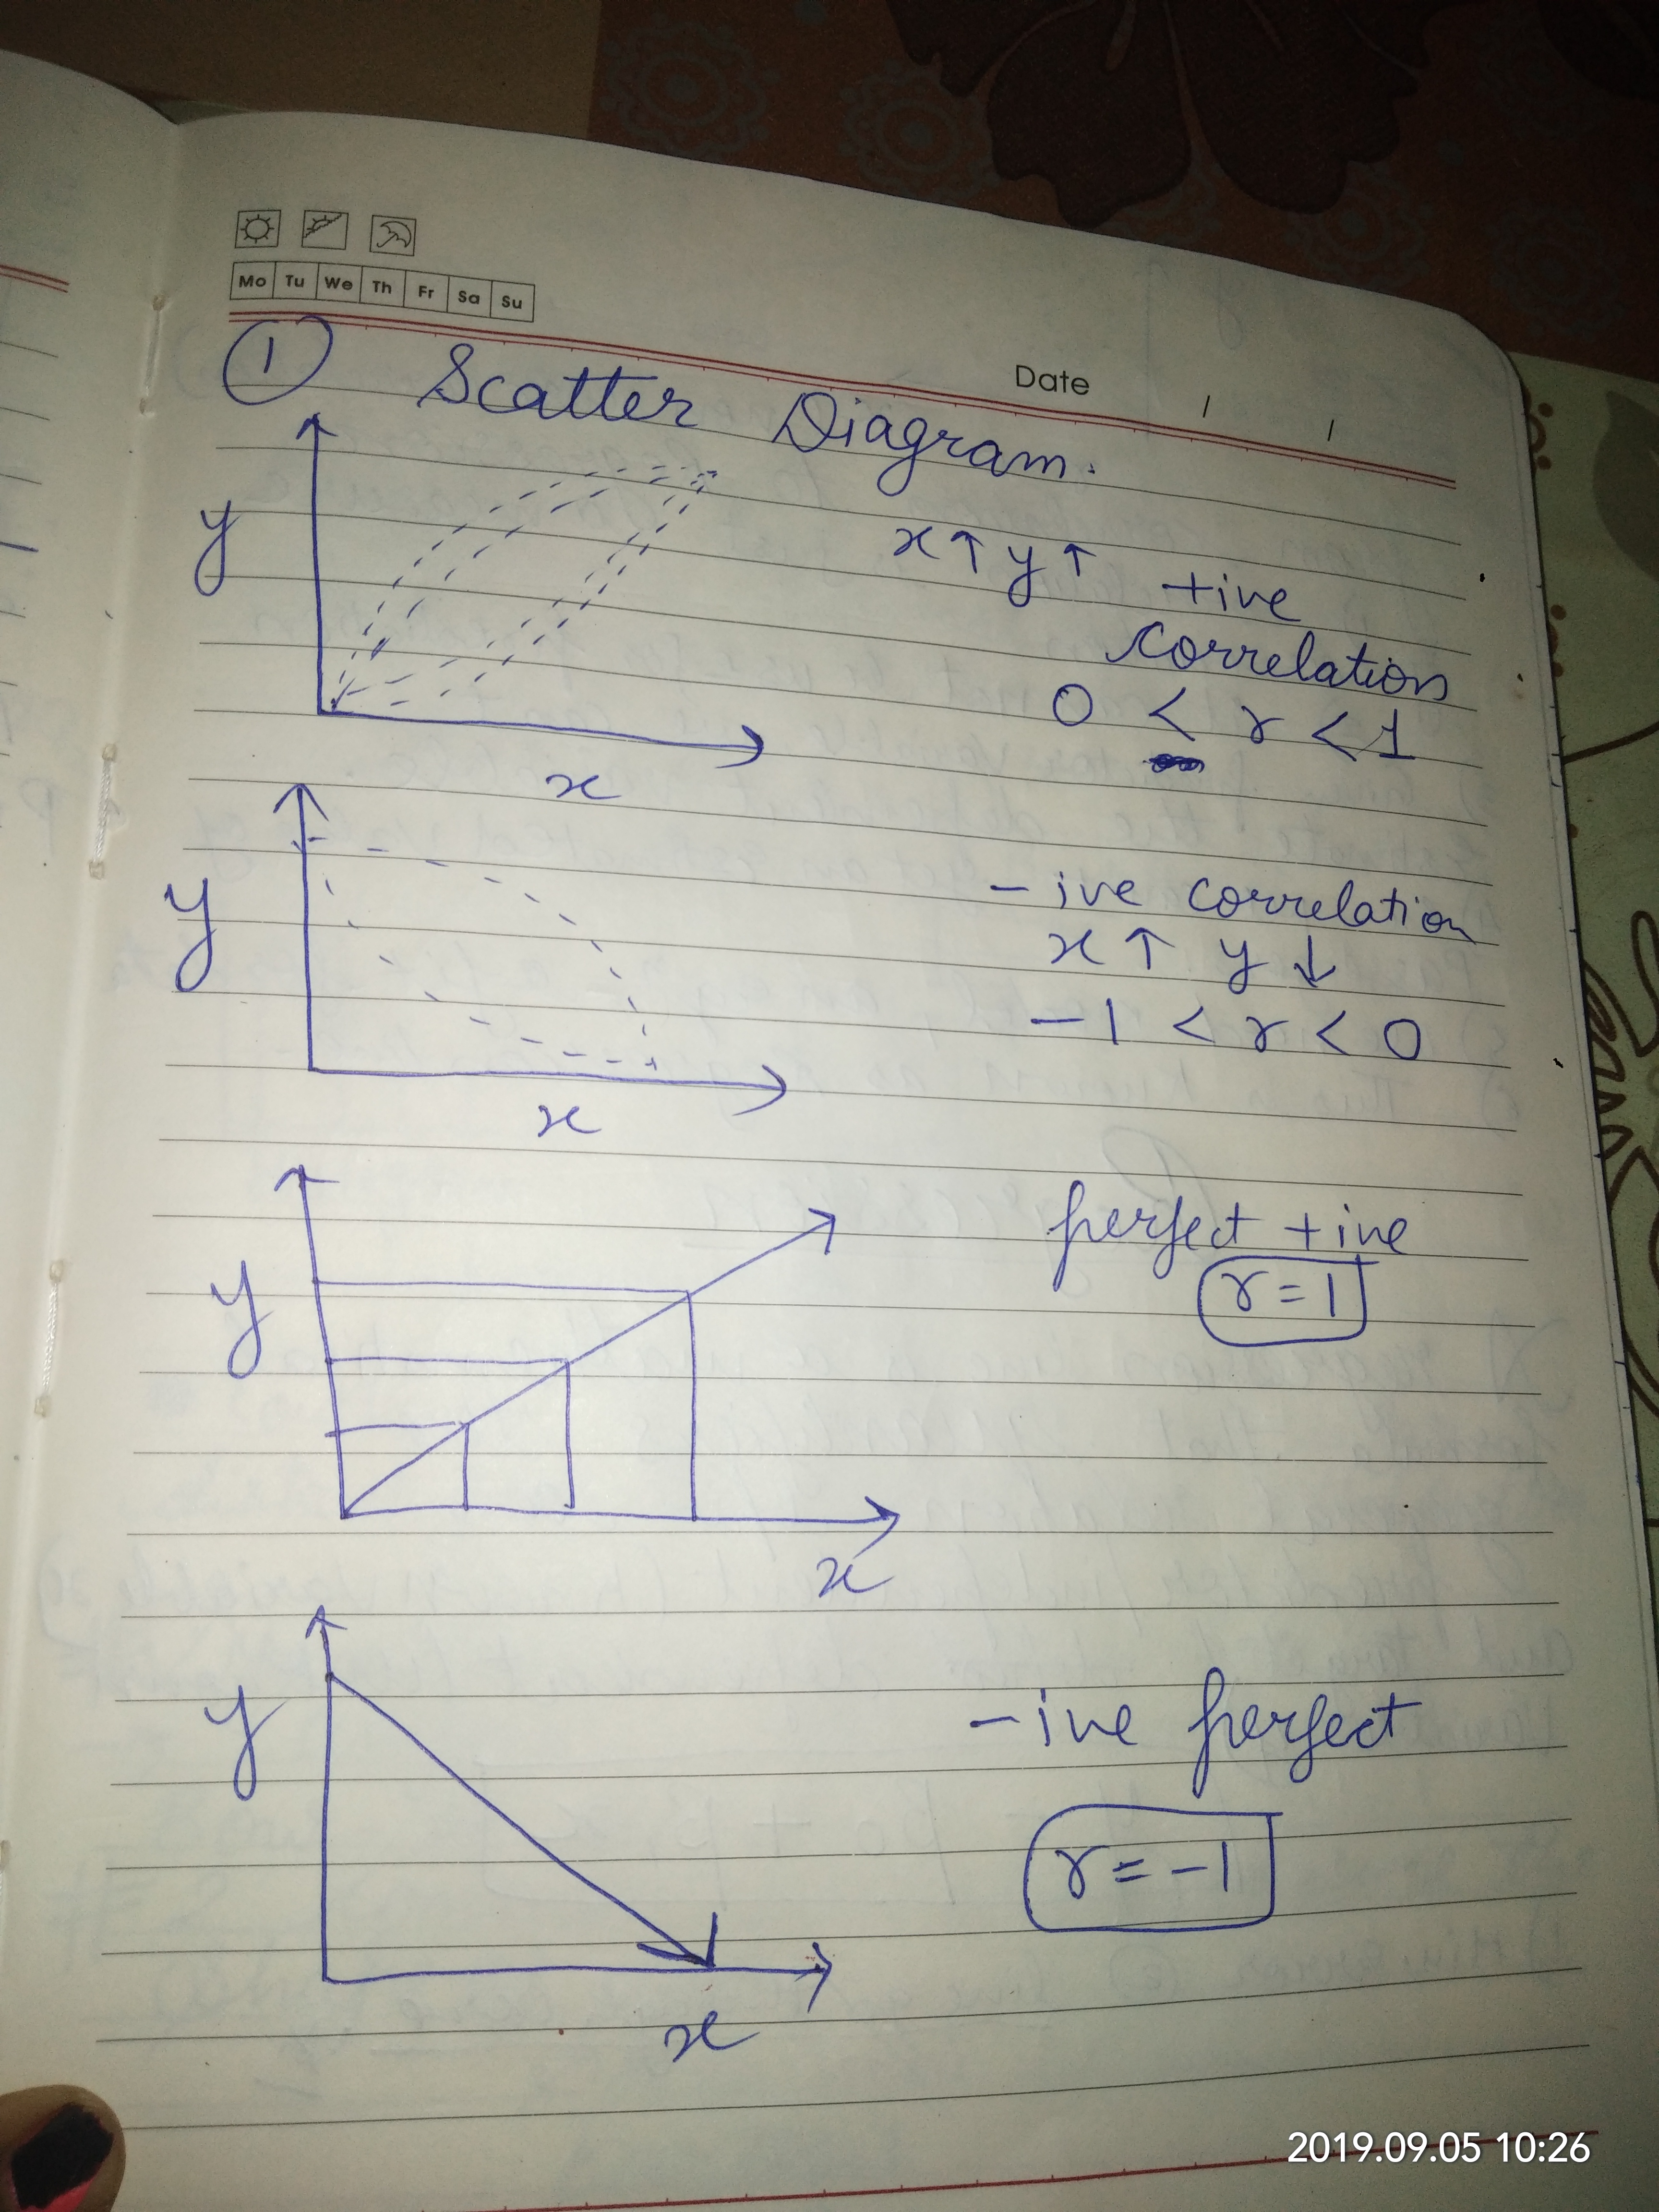 Mo Tu We Th Fr Sa Su
Date / /
1 Scatter Diagram.
y
x↑ y↑ +ive
correlation
0 < r < 1
x
y
-ive correlation
x↑ y↓
-1 < r < 0
x
perfect +ive
y
r = 1
x
y
-ive perfect
r = -1
x
2019.09.05 10:26